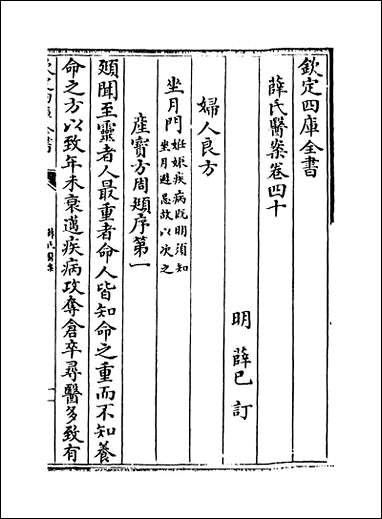 欽定四庫全書
薛氏醫案卷四十
明 薛己 訂
婦人良方
坐月門妊娠疾病既明須知
坐月避忌故以次之
産寳方周頲序第一
頲聞至靈者人最重者命人皆知命之重而不知養
命之方以致年未衰邁疾病攻奪倉卒尋醫多致有
薛氏醫案